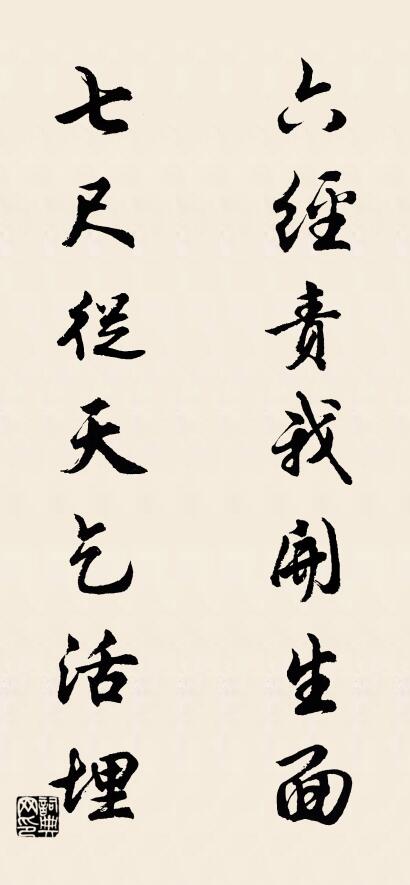 六經責我開生面
七尺從天乞活埋
詞典網印